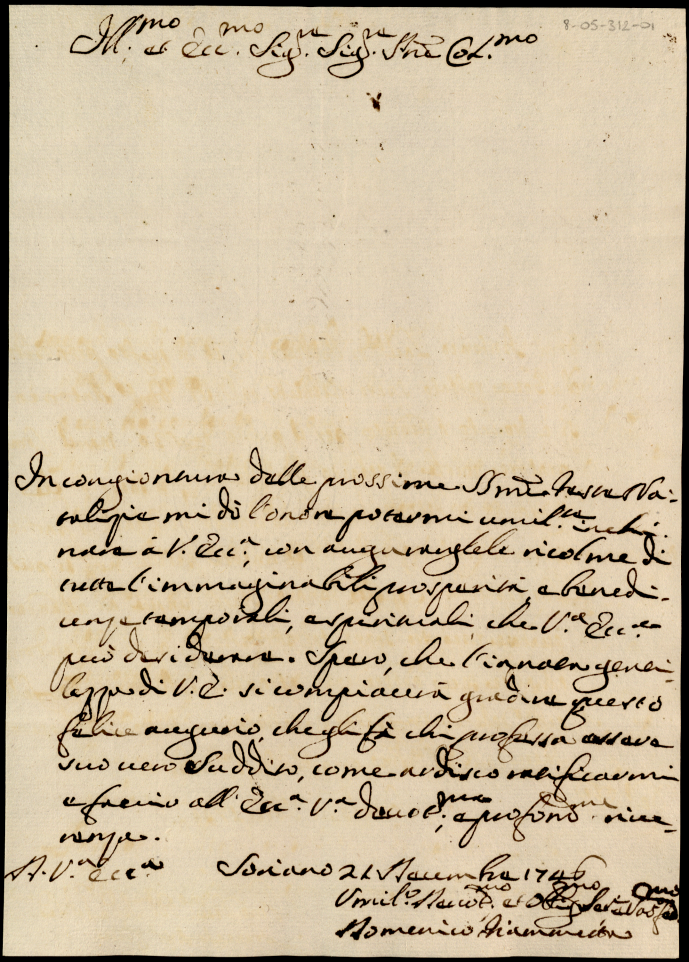 8-05-312-01
Ill.mo et Ecc.mo Sig.re Sig.re Pñe Col.mo
In congiontura delle prossime SSmẽ Feste Na:
talizie mi dò l'onore potermi umil.te inchi:
nare à V. Ecc.a, con augurarglele ricolme di
tutte l'immaginabili prosperità, e benedi:
zenze temporali, e spirituali, che V.a Ecc.a
può desiderare. Spero, che l'innata genti:
lezza di V. E. si compiacerà gradire questo
felice augurio, che gli fà chi professa essere
suo vero Suddito, come ardisco ratificarmi
e faccio all'Ecc.a V.a devot.ma, e profond.ma rive:
renza.
D. V.a Ecc.a Soriano 21 Decembre 1746
Umil.o Devot.mo et Obbligmo
Domenico Fiammetta